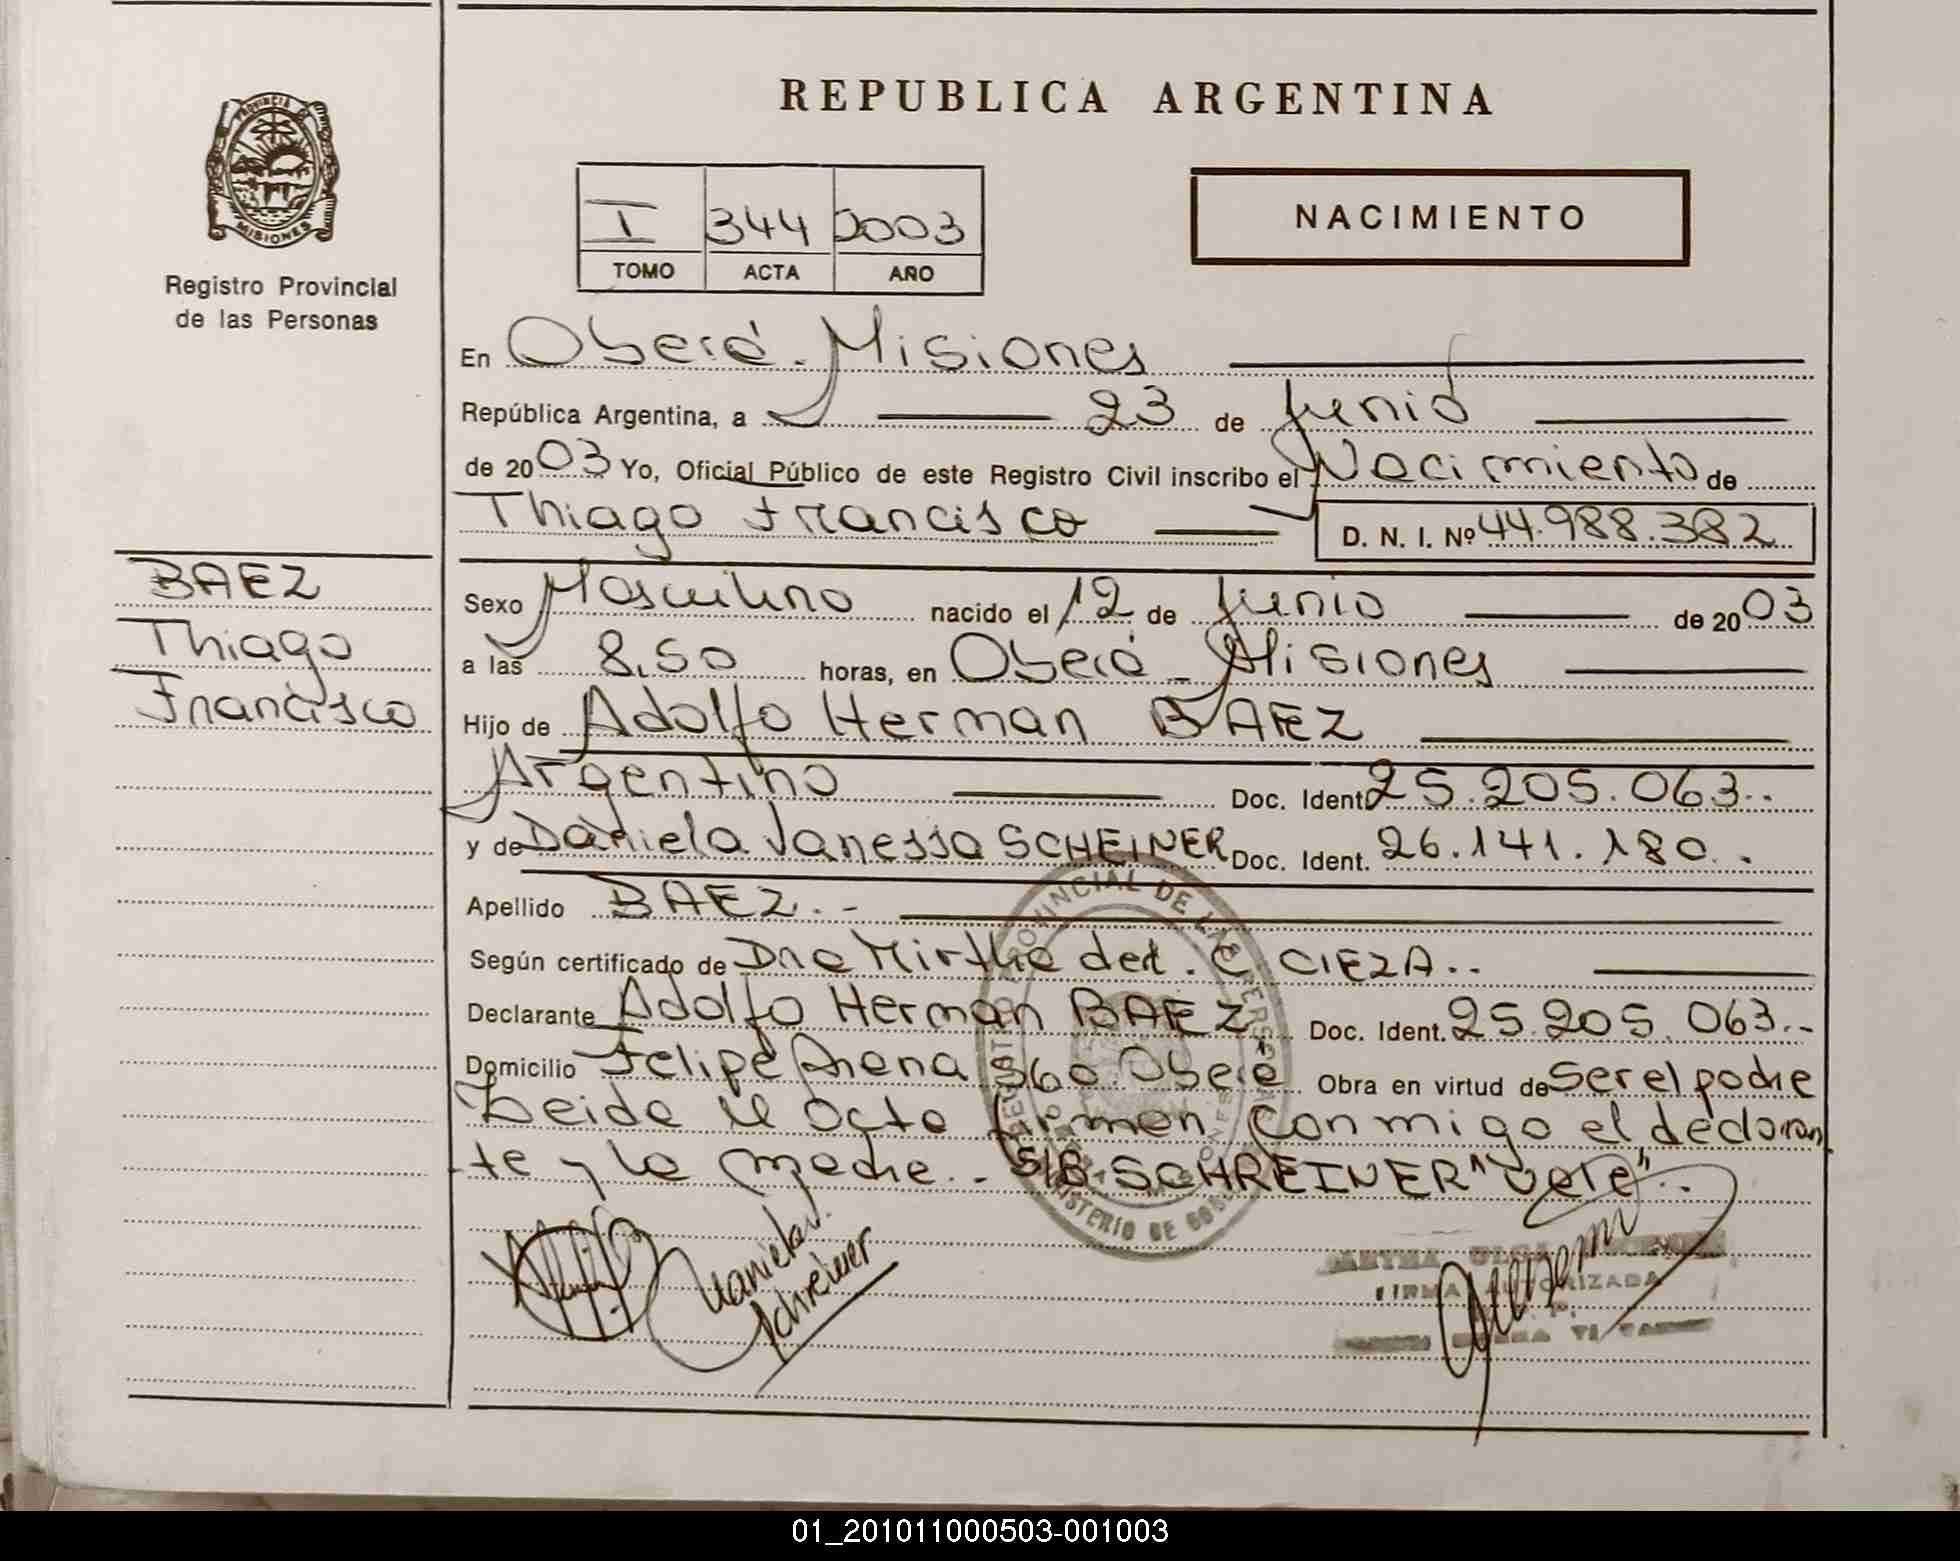 REPUBLICA ARGENTINA
PROVINCIA
MISIONES
Registro Provincial
de las Personas
I 344 2003
TOMO ACTA AÑO
NACIMIENTO
En Oberá - Misiones
República Argentina, a 23 de Junio
de 2003 Yo, Oficial Público de este Registro Civil inscribo el Nacimiento de
Thiago Francisco D. N. I. Nº 44.988.382
BAEZ
Thiago
Francisco
Sexo Masculino nacido el 12 de Junio de 2003
a las 8,50 horas, en Oberá - Misiones
Hijo de Adolfo Herman BAEZ
Argentino Doc. Ident. 25.205.063..
y de Daniela Vanessa SCHEINER Doc. Ident. 26.141.180..
Apellido BAEZ.-
Según certificado de Dra Mirtha del . C CIEZA..
Declarante Adolfo Herman BAEZ Doc. Ident. 25.205.063..
Domicilio Felipe Arena 560 Oberá Obra en virtud de Ser el padre
Leida el acta firman conmigo el declaran
te y la madre.- S/B. SCHREINER "Vale"..
REGISTRO PROVINCIAL DE LAS PERSONAS
MINISTERIO DE GOB
Daniela V.
Schreiner
FIRMA AUTORIZADA
01_201011000503-001003